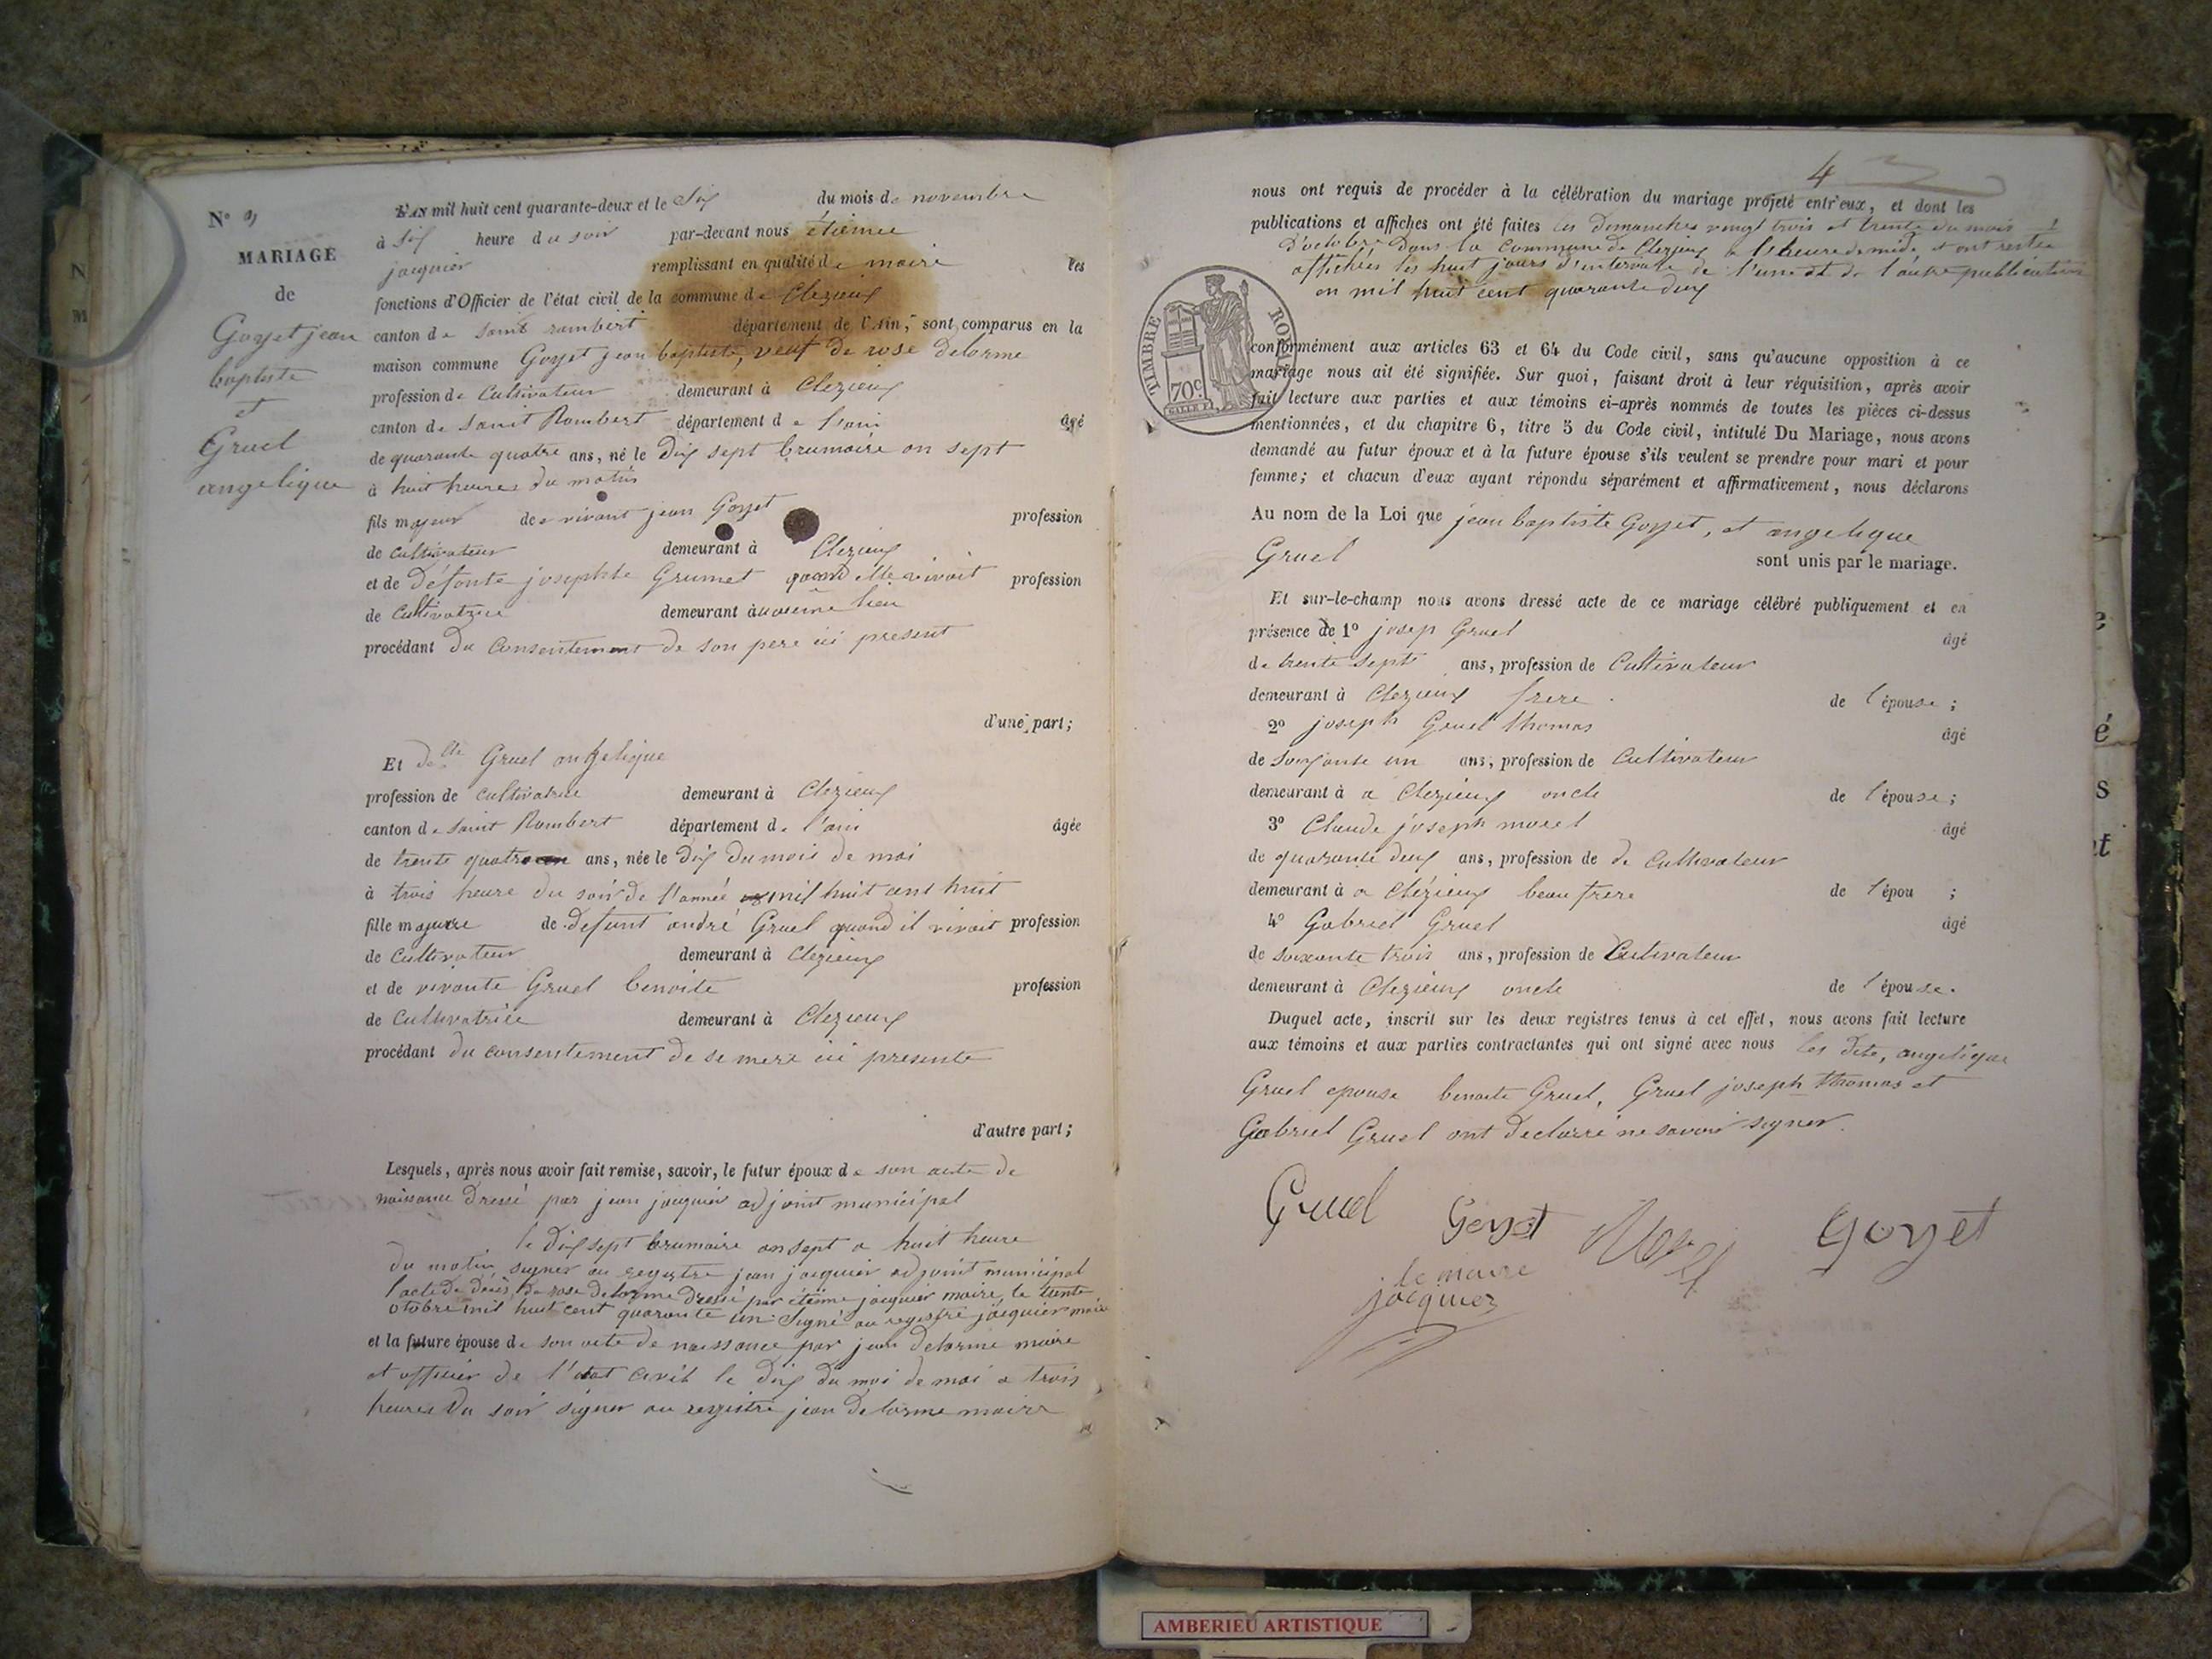 N°
MARIAGE
de
Goyet jean
baptiste
et
Gruel
angelique
L'AN mil huit cent quarante-deux et le Six du mois de novembre
à Six heure du soir par-devant nous étienne
jacquier remplissant en qualité de maire les
fonctions d'Officier de l'état civil de la commune de Clezieux
canton de saint rambert département de l'Ain, sont comparus en la
maison commune Goyet jean baptiste, veuf de rose delorme
profession de Cultivateur demeurant à Clezieux
canton de Saint Rambert département de l'ain âgé
de quarante quatre ans, né le Dix sept brumaire an sept
à huit heures du matin
fils majeur de vivant jean Goyet profession
de cultivateur demeurant à Clezieux
et de défonte josephte Grumet quand elle vivoit profession
de Cultivatrice demeurant à au même lieu
procédant du Consentement de son pere ici present
d'une part;
Et Dlle Gruel angelique
profession de cultivatrice demeurant à Clezieux
canton de saint Rambert département de l'ain âgée
de trente quatre ans, née le Dix du mois de mai
à trois heure du soir de l'année mil huit cent huit
fille majeure de défunt andré Gruel quand il vivoit profession
de Cultivateur demeurant à Clezieux
et de vivante Gruel benoite profession
de Cultivatrice demeurant à Clezieux
procédant du consentement de se mere ici presente
d'autre part;
Lesquels, après nous avoir fait remise, savoir, le futur époux de son acte de
naissance Dressé par jean jacquier adjoint municipal
le Dix sept brumaire an sept a huit heure
du matin signer au registre jean jacquier adjoint municipal
l'acte de décès de rose delorme dressé par étienne jacquier maire, le trente
otobre mil huit cent quarante un. Signé au registre jacquier maire
et la future épouse de son acte de naissance par jean delorme maire
et officier de l'état civil le dix du moi de mai a trois
heures du soir signer au registre jean delorme maire
4
nous ont requis de procéder à la célébration du mariage projeté entr'eux, et dont les
publications et affiches ont été faites les Dimanches vingt trois et trente du mois
D'octobre Dans la Commune de Clezieux a l'heure de midi et ont restée
affichées les huit jours d'intervale de l'une et de l'autre publication
en mil huit cent quarante deux
TIMBRE ROYAL
70c
conformément aux articles 63 et 64 du Code civil, sans qu'aucune opposition à ce
mariage nous ait été signifiée. Sur quoi, faisant droit à leur réquisition, après avoir
fait lecture aux parties et aux témoins ci-après nommés de toutes les pièces ci-dessus
mentionnées, et du chapitre 6, titre 5 du Code civil, intitulé Du Mariage, nous avons
demandé au futur époux et à la future épouse s'ils veulent se prendre pour mari et pour
femme; et chacun d'eux ayant répondu séparément et affirmativement, nous déclarons
Au nom de la Loi que jean baptiste Goyet, et angelique
Gruel sont unis par le mariage.
Et sur-le-champ nous avons dressé acte de ce mariage célébré publiquement et en
présence de 1° josep Gruel âgé
de trente sept ans, profession de Cultivateur
demeurant à Clezieux frere de l'épouse;
2° joseph Gruel thomas âgé
de soixante un ans, profession de Cultivateur
demeurant à a Clezieux oncle de l'épouse;
3° Claude joseph morel âgé
de quarante deux ans, profession de de Cultivateur
demeurant à a Clézieux beau frere de l'épou ;
4° Gabriel Gruel âgé
de soixante trois ans, profession de Cultivateur
demeurant à Clezieux oncle de l'épouse.
Duquel acte, inscrit sur les deux registres tenus à cet effet, nous avons fait lecture
aux témoins et aux parties contractantes qui ont signé avec nous les dite, angelique
Gruel epouse benoite Gruel, Gruel joseph thomas et
Gabriel Gruel ont declarré ne savoir signer.
Gruel Goyet Morel Goyet
le maire
jacquier
AMBERIEU ARTISTIQUE